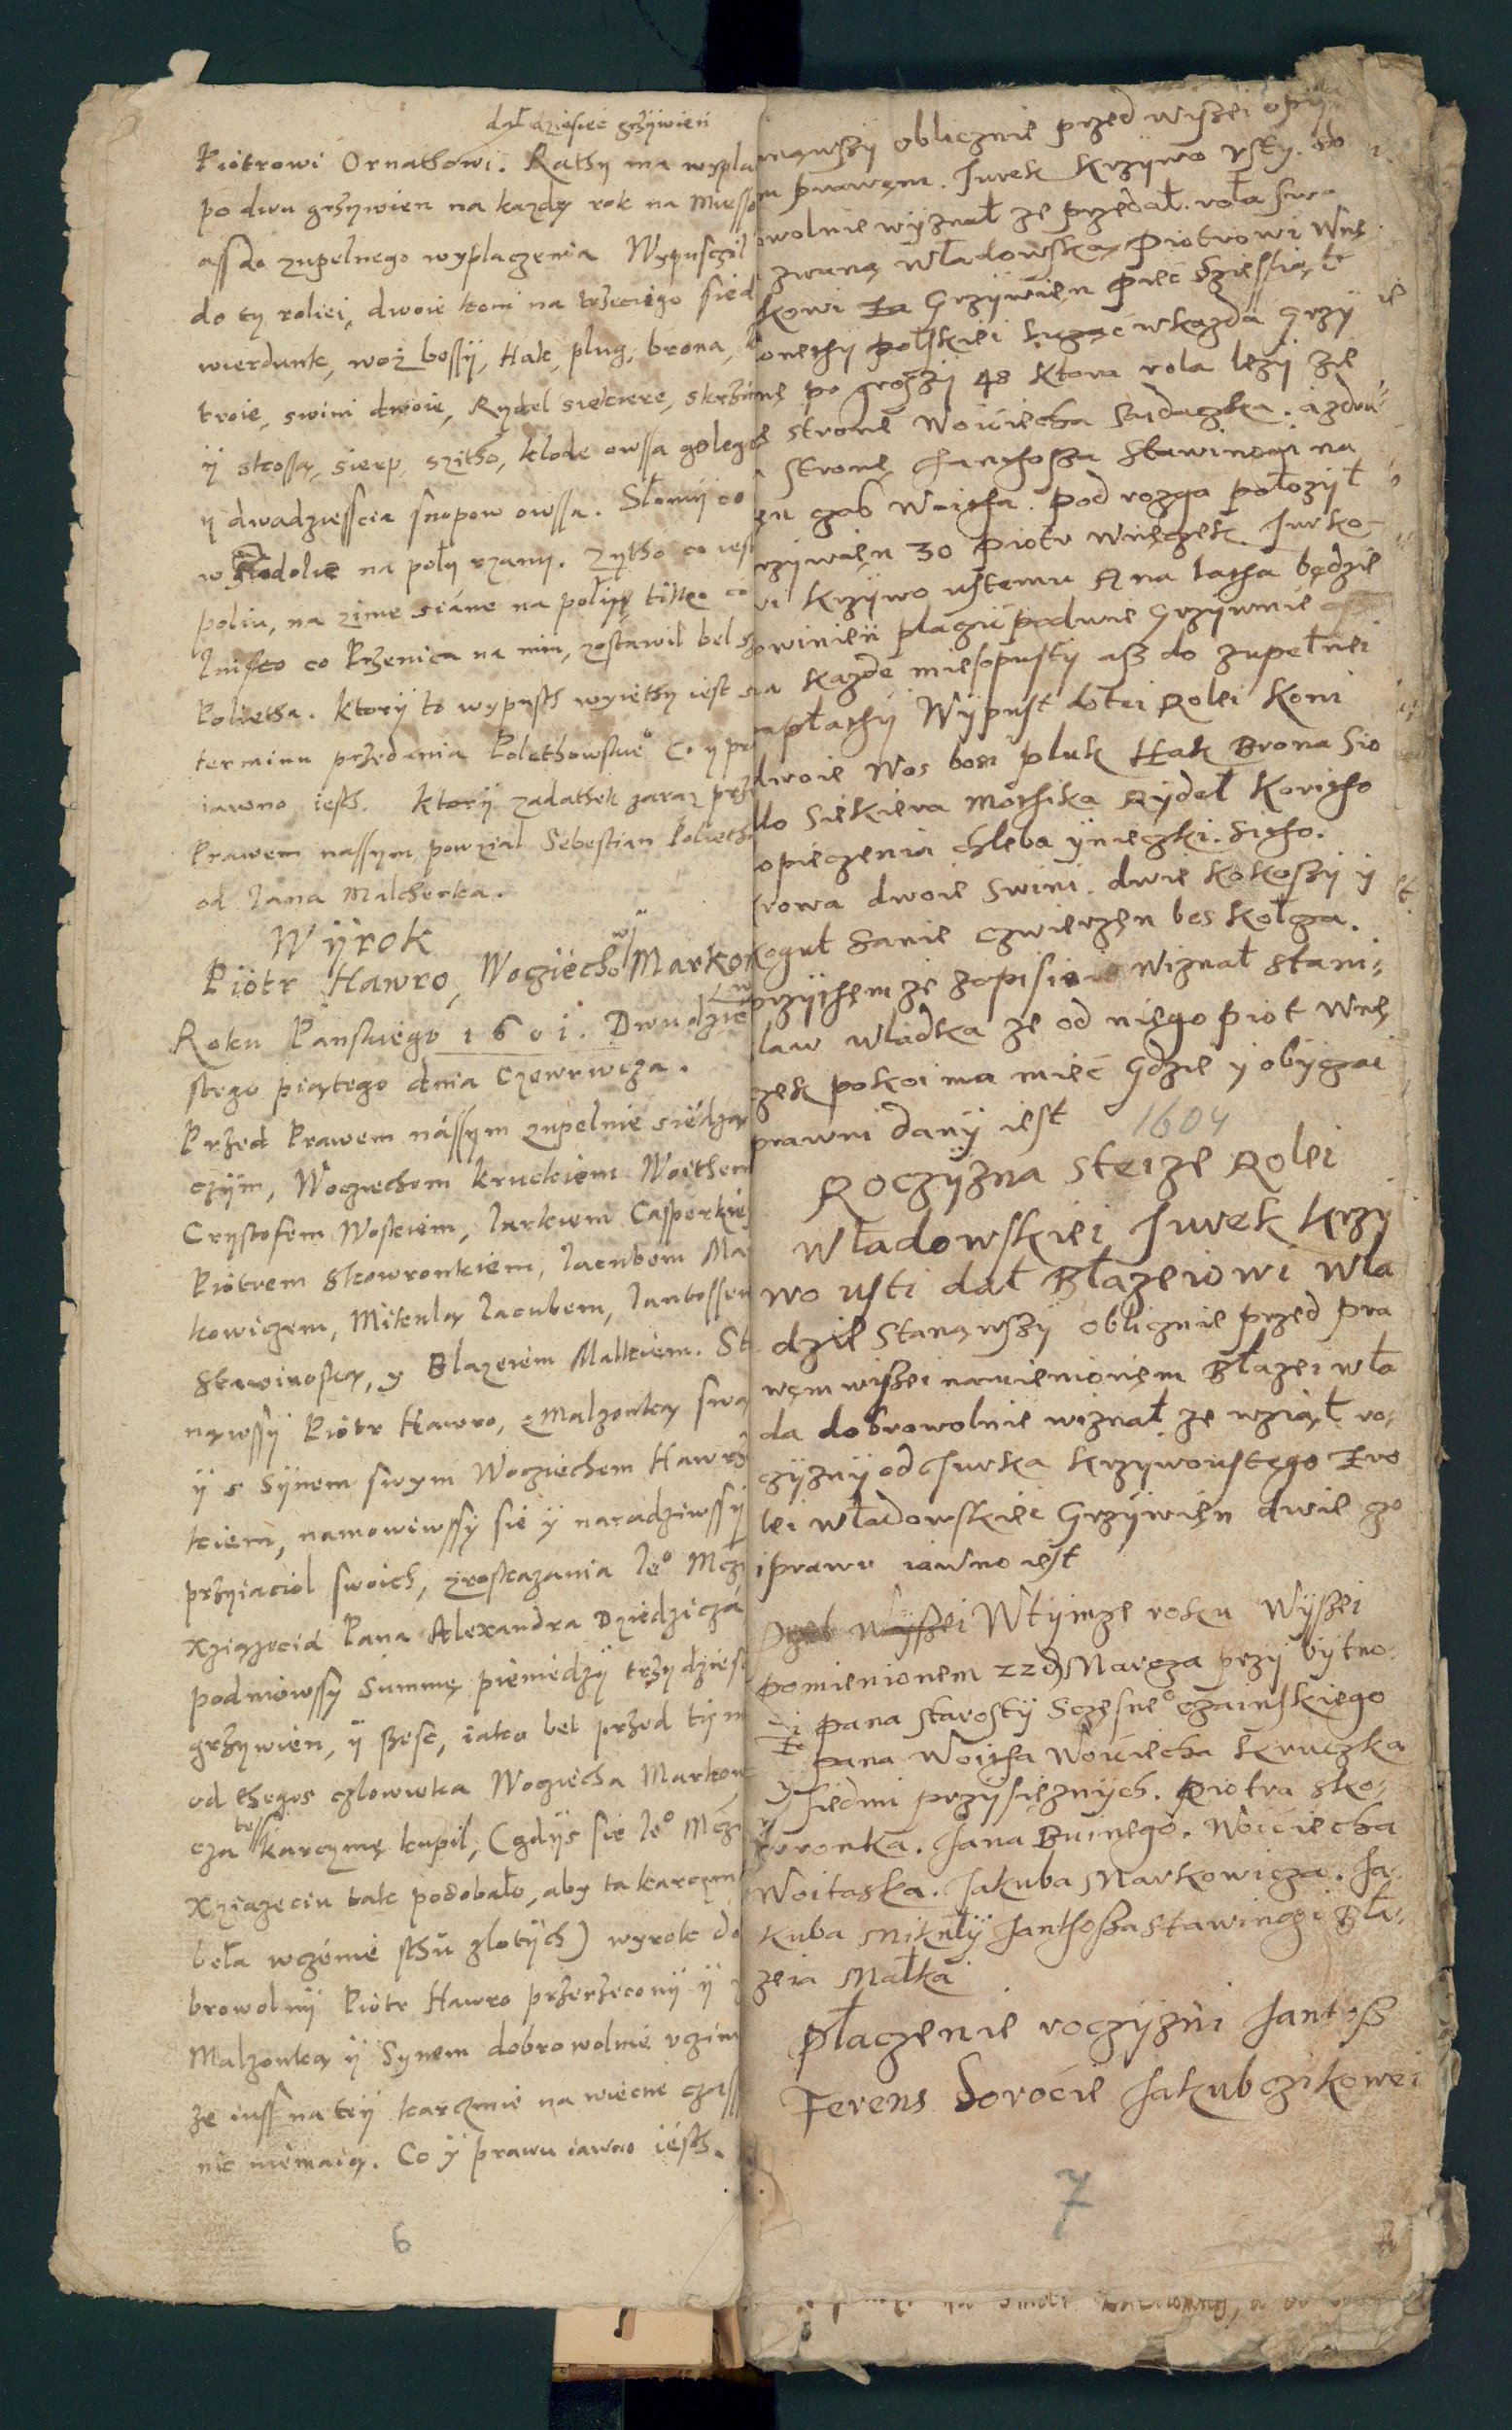 dał dziesiec grziwien
Piotrowi Ornathowi. Rathy ma wypla
po dwu grzywien na kazdy rok na Miesso
ass do zupelnego wyplaczenia Wypuscził
do ty roliei, dwoie koni na trzeciego sied
wierdunk, woz bossy, Hak, plug, brona,
troie, swini dwoie, Rydel siekiere, skrzin
y kossa, sierp, szitho, klode owssa golego
y dwadziesscia snopow owssa. Słomy co
w stodolie na poły rzany. Zytho co iest
poliu, na zime siane na poły tilko co
Inisko co Przenica na nim, zostawil bel
Polietha. ktory to wypusth wyiethy iest
terminu przedania Polethowskieº Co y pra
iawno iesth. ktory zadathek zaraz prze
Prawem nassym powzial Sebestian Polieth
od Jana Malcherka.
Wyrok
Piotr Hawro, Wocziechowi Markow
Roku Panskiego 1601. Dwudzie
stego piątego dnia Czerwcza.
Przed Prawem nassym zupelnie siedzą
czym, Wocziechem kruckiem Woithem
Crystofem Woskiem, Jurkiem Casperkie
Piotrem Skowronkiem, Jacubem Mar
kowiczem, Mikulą Jacubem, Jantossem
Skawinoską, y Blazeiem Malkiem. Sta
nąwssy Piotr Hawro, z Malzonką swą
y s Synem swym Wocziechem Hawrz
kiem, namowiwssy sie y naradziwssy
przyiaciol swoich, z roskazania Jeº Mczi
Xziązecia Pana Alexandra Dziedziczá
podniowssy Summę pieniedzy trzydziesc
grzywien, y szesc, iako bel przed tym
od thegos czlowieka Wogiecha Markow
cza tess karczmę kupil, (gdys sie Jeº Mczi
Xziązeciu tak podobało, aby ta karczm
beła w czenie sthu zlotych) wyrok do
browolny Piotr Hawro przerzecony y z
Malzonką y Synem dobrowolnie vczin
ze iuss na tey karczmie na wiecne czass
nic niemaią. Co y prawu iawno iesth.
6
nąwszy oblicznie przed wyszei opy
m prawęm. Jurek krzywo vsty. do
owolnie wyznał że przedał. roła swa
zwaną władowską, piotrowi Wnę
kowi za Grzywien pięć dziesiąt
onethy polskiei licząć w kazda Grzy
nę po groszy 48 ktora rola lezy ze
stronę Woiciecha Saidaczka. a z dru
stronę Janthosza Stawinogi na
ęn czas Woitha. pod rozga położył
rzywięn 30 piotr Wnęczek Jurko
vi krzywo ustemu A na latha będzie
owinien płacić po dwie Grzywnie
na każde miesopusty asz do zupełnei
apłathy Wypust do tei Rolei koni
dwoie Wos bosi pluk Hak Brona Sio
dlo Siekiera Mothika Rydeł koritho
opieczenia chleba y nieczki. Sitho.
krowa dwoie Swini. dwie kokoszy y
kogut Sanie czwierzęn bes kołcza.
przythęm ze zopisie Wiznał stani
law władka ze od niego piot Wnę
zek pokoi ma mieć gdzie y obyczai
prawni dany iest
1604
Roczyzna steize Rolei
Władowskiei Jurek krzy
wo usti dał Błazeiowi Wła
dzie Stanąwszy oblicznie przed pra
węm wiszei namienionęm Błazei wła
da dobrowolnie wiznał ze wziął ro
czyzny od Jurka krzywoustego z ro
lei władowskiei Grzywięn dwie co
i prawu iawno iest
Wtymze roku Wyszei
pomienionem 22 d Marcza przy bytno
ci pana starosty Sczesneº czaińskiego
pana Woitha Woiciecha kruczka
y siedmi przysięznych. Piotra sko
wronka. Jana Buinego. Woiciecha
Woitaska. Jakuba Markowicza. Ja
kuba Mikuły Janthosza Stawinogi Bła
zeia Małka
Płaczenie roczyzni Jantosz
Ferens dorocie Jakubczikowei
7